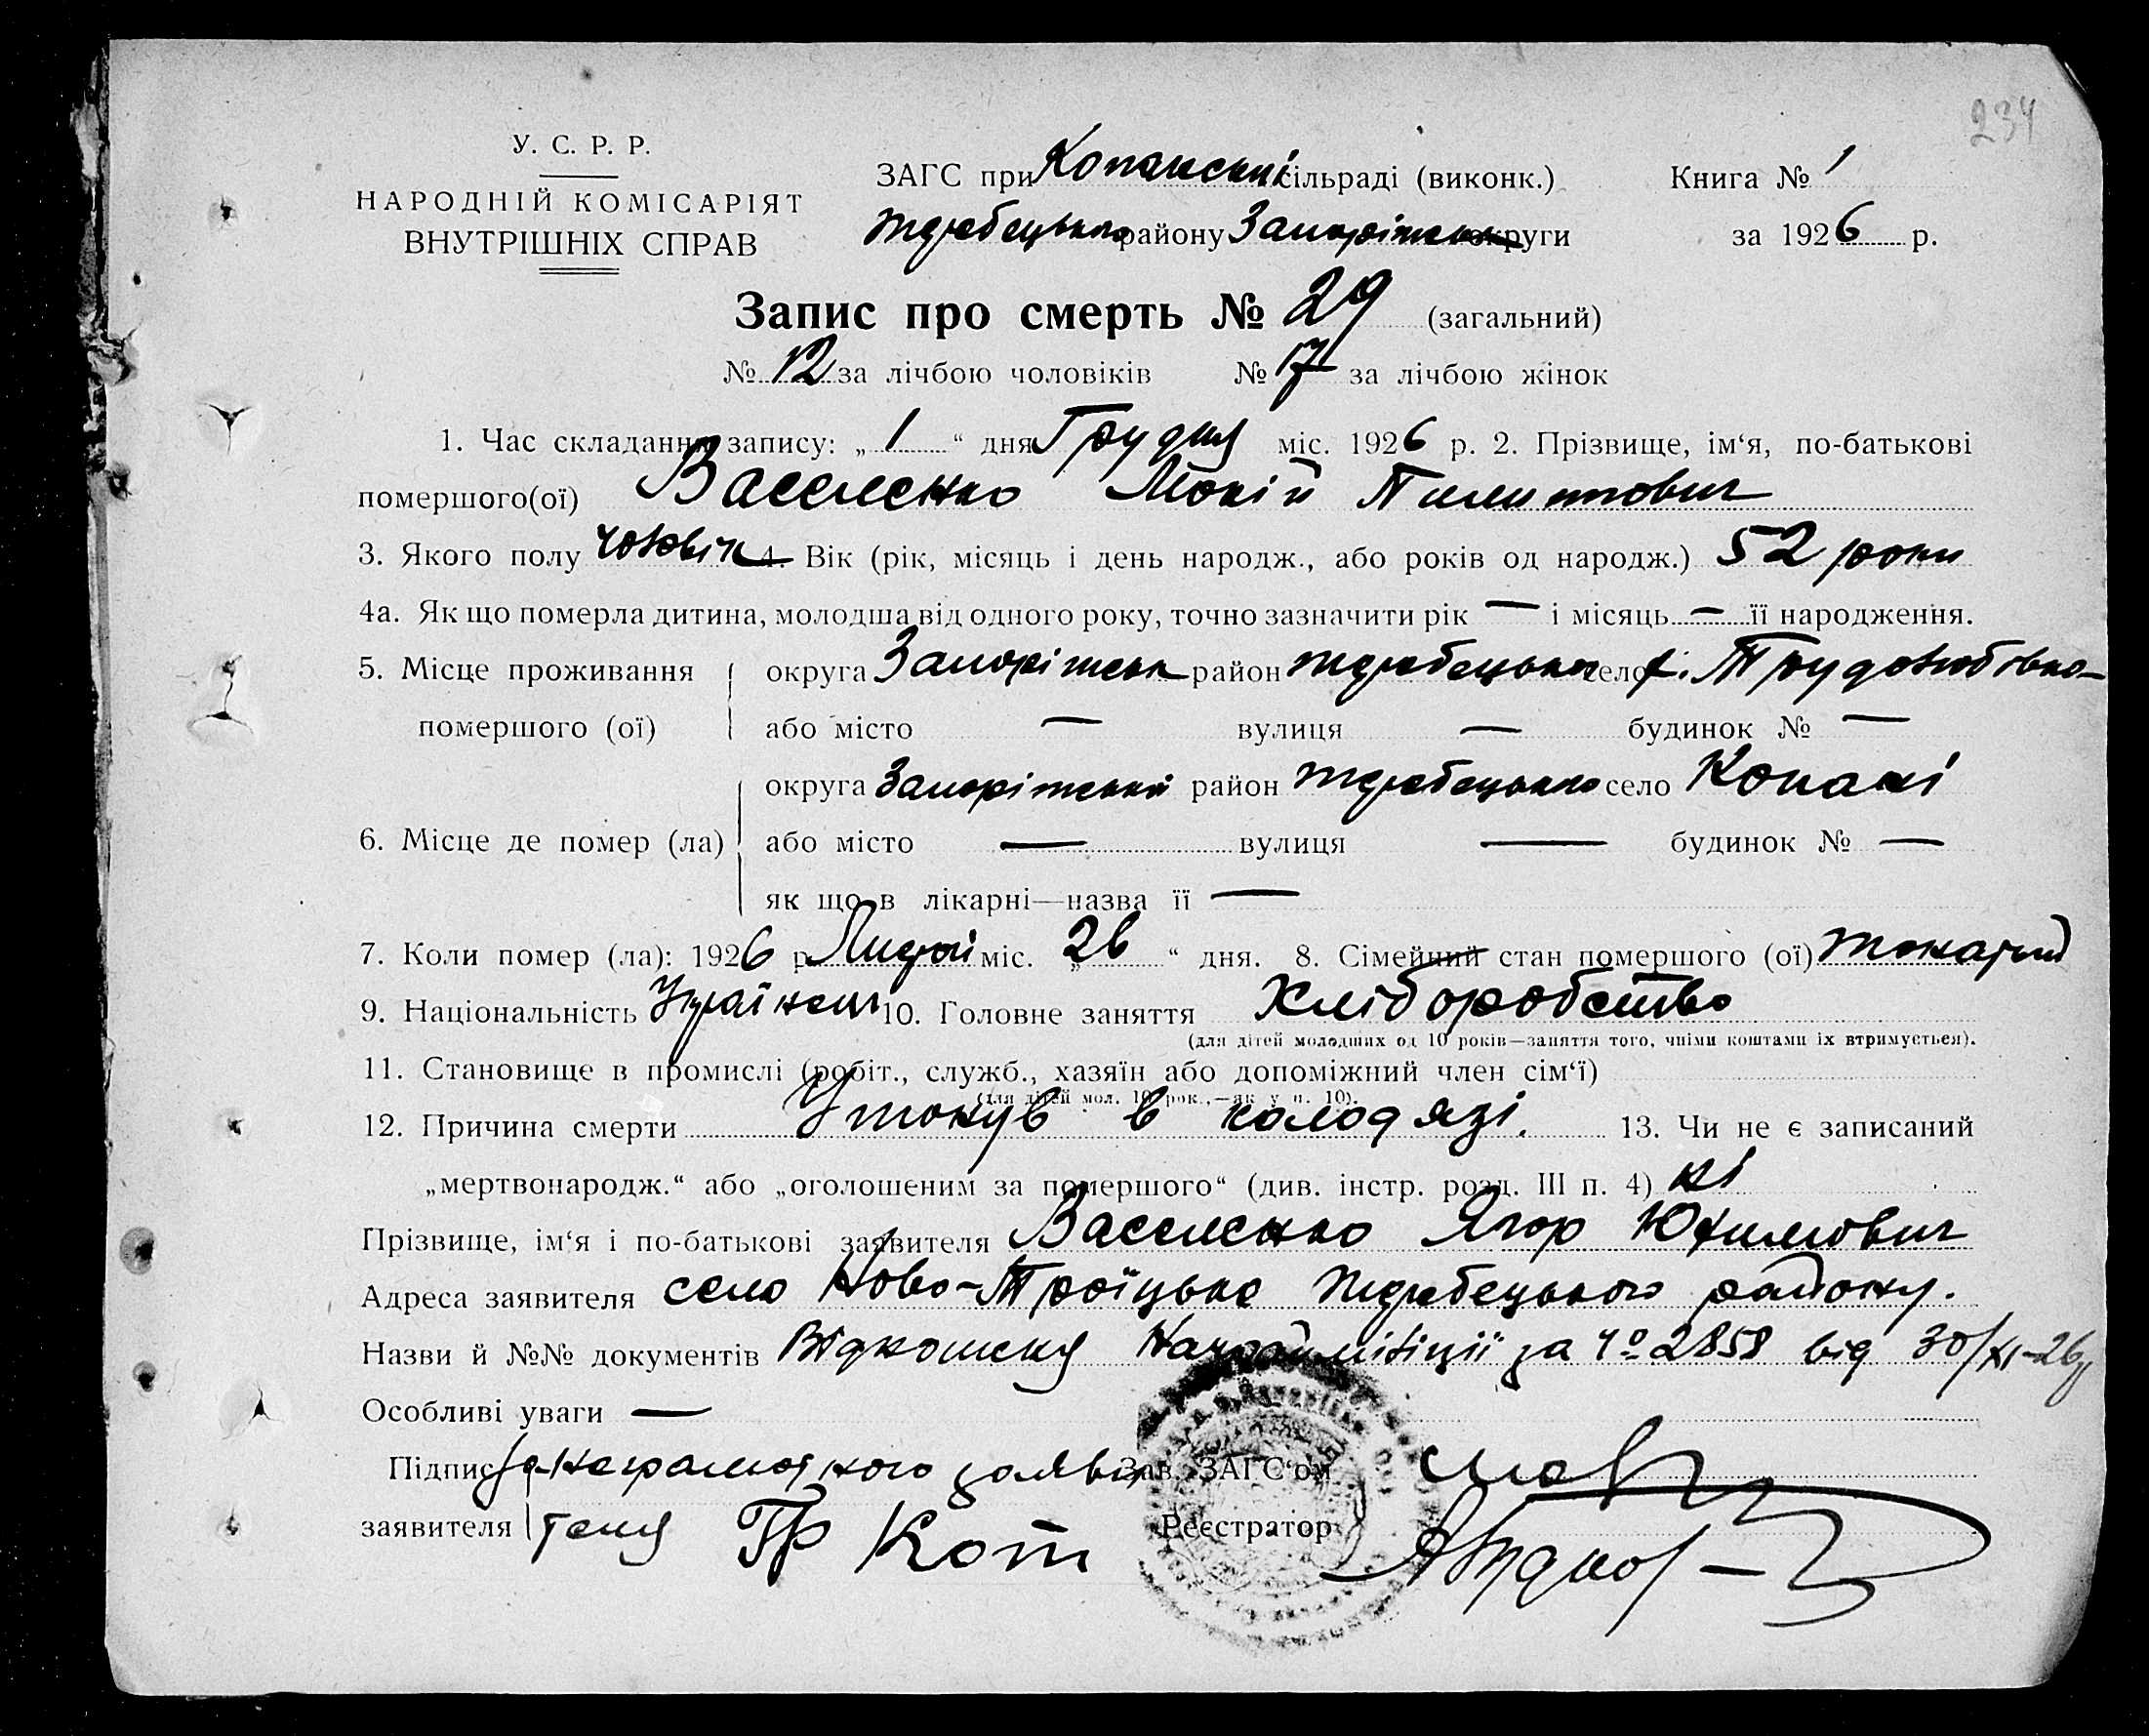 234
У. С. Р. Р.
НАРОДНІЙ КОМІСАРІЯТ
ВНУТРІШНІХ СПРАВ
ЗАГС при Копанській сільраді (виконк.) Книга № 1
Жеребецького району Запоріжськ округи за 1926 р.
Запис про смерть № 29 (загальний)
№ 12 за лічбою чоловіків № 17 за лічбою жінок
1. Час складання запису: „ 1 “ дня Грудня міс. 1926 р. 2. Прізвище, ім‘я, по-батькові
помершого(ої) Васеленко Мокій Пилипович
3. Якого полу чоловік 4. Вік (рік, місяць і день народж., або років од народж.) 52 роки
4а. Як що померла дитина, молодша від одного року, точно зазначити рік — і місяць — її народження.
5. Місце проживання округа Запоріжськ район Жеребецький село х. Трудолюбовка
помершого (ої) або місто — вулиця — будинок № —
округа Запоріжський район Жеребецького село Копані
6. Місце де помер (ла) або місто — вулиця — будинок № —
як що в лікарні—назва її —
7. Коли помер (ла): 1926 р. міс. „ 26 “ дня. 8. Сімейний стан помершого (ої) жонатий
9. Національність Українець 10. Головне заняття Хліборобство
(для дітей молодших од 10 років—заняття того, чиїми коштами їх втримується).
11. Становище в промислі (робіт., служб., хазяїн або допоміжний член сім‘ї)
(для дітей мол. 10 рок.,—як у п. 10).
12. Причина смерти Утонув в колодязі. 13. Чи не є записаний
„мертвонародж.“ або „оголошеним за помершого“ (див. інстр. розд. III п. 4) ні
Прізвище, ім‘я і по-батькові заявителя Васеленко Ягор Юхимович
Адреса заявителя село Ново-Троїцьке Жеребецького району.
Назви й №№ документів Відношення Начраймітіції за № 2858 від 30/XI-26р
Особливі уваги —
Підпис за неграмотного заяви Зав. ЗАГС‘ом
заявителя теля Гр Кот Реєстратор